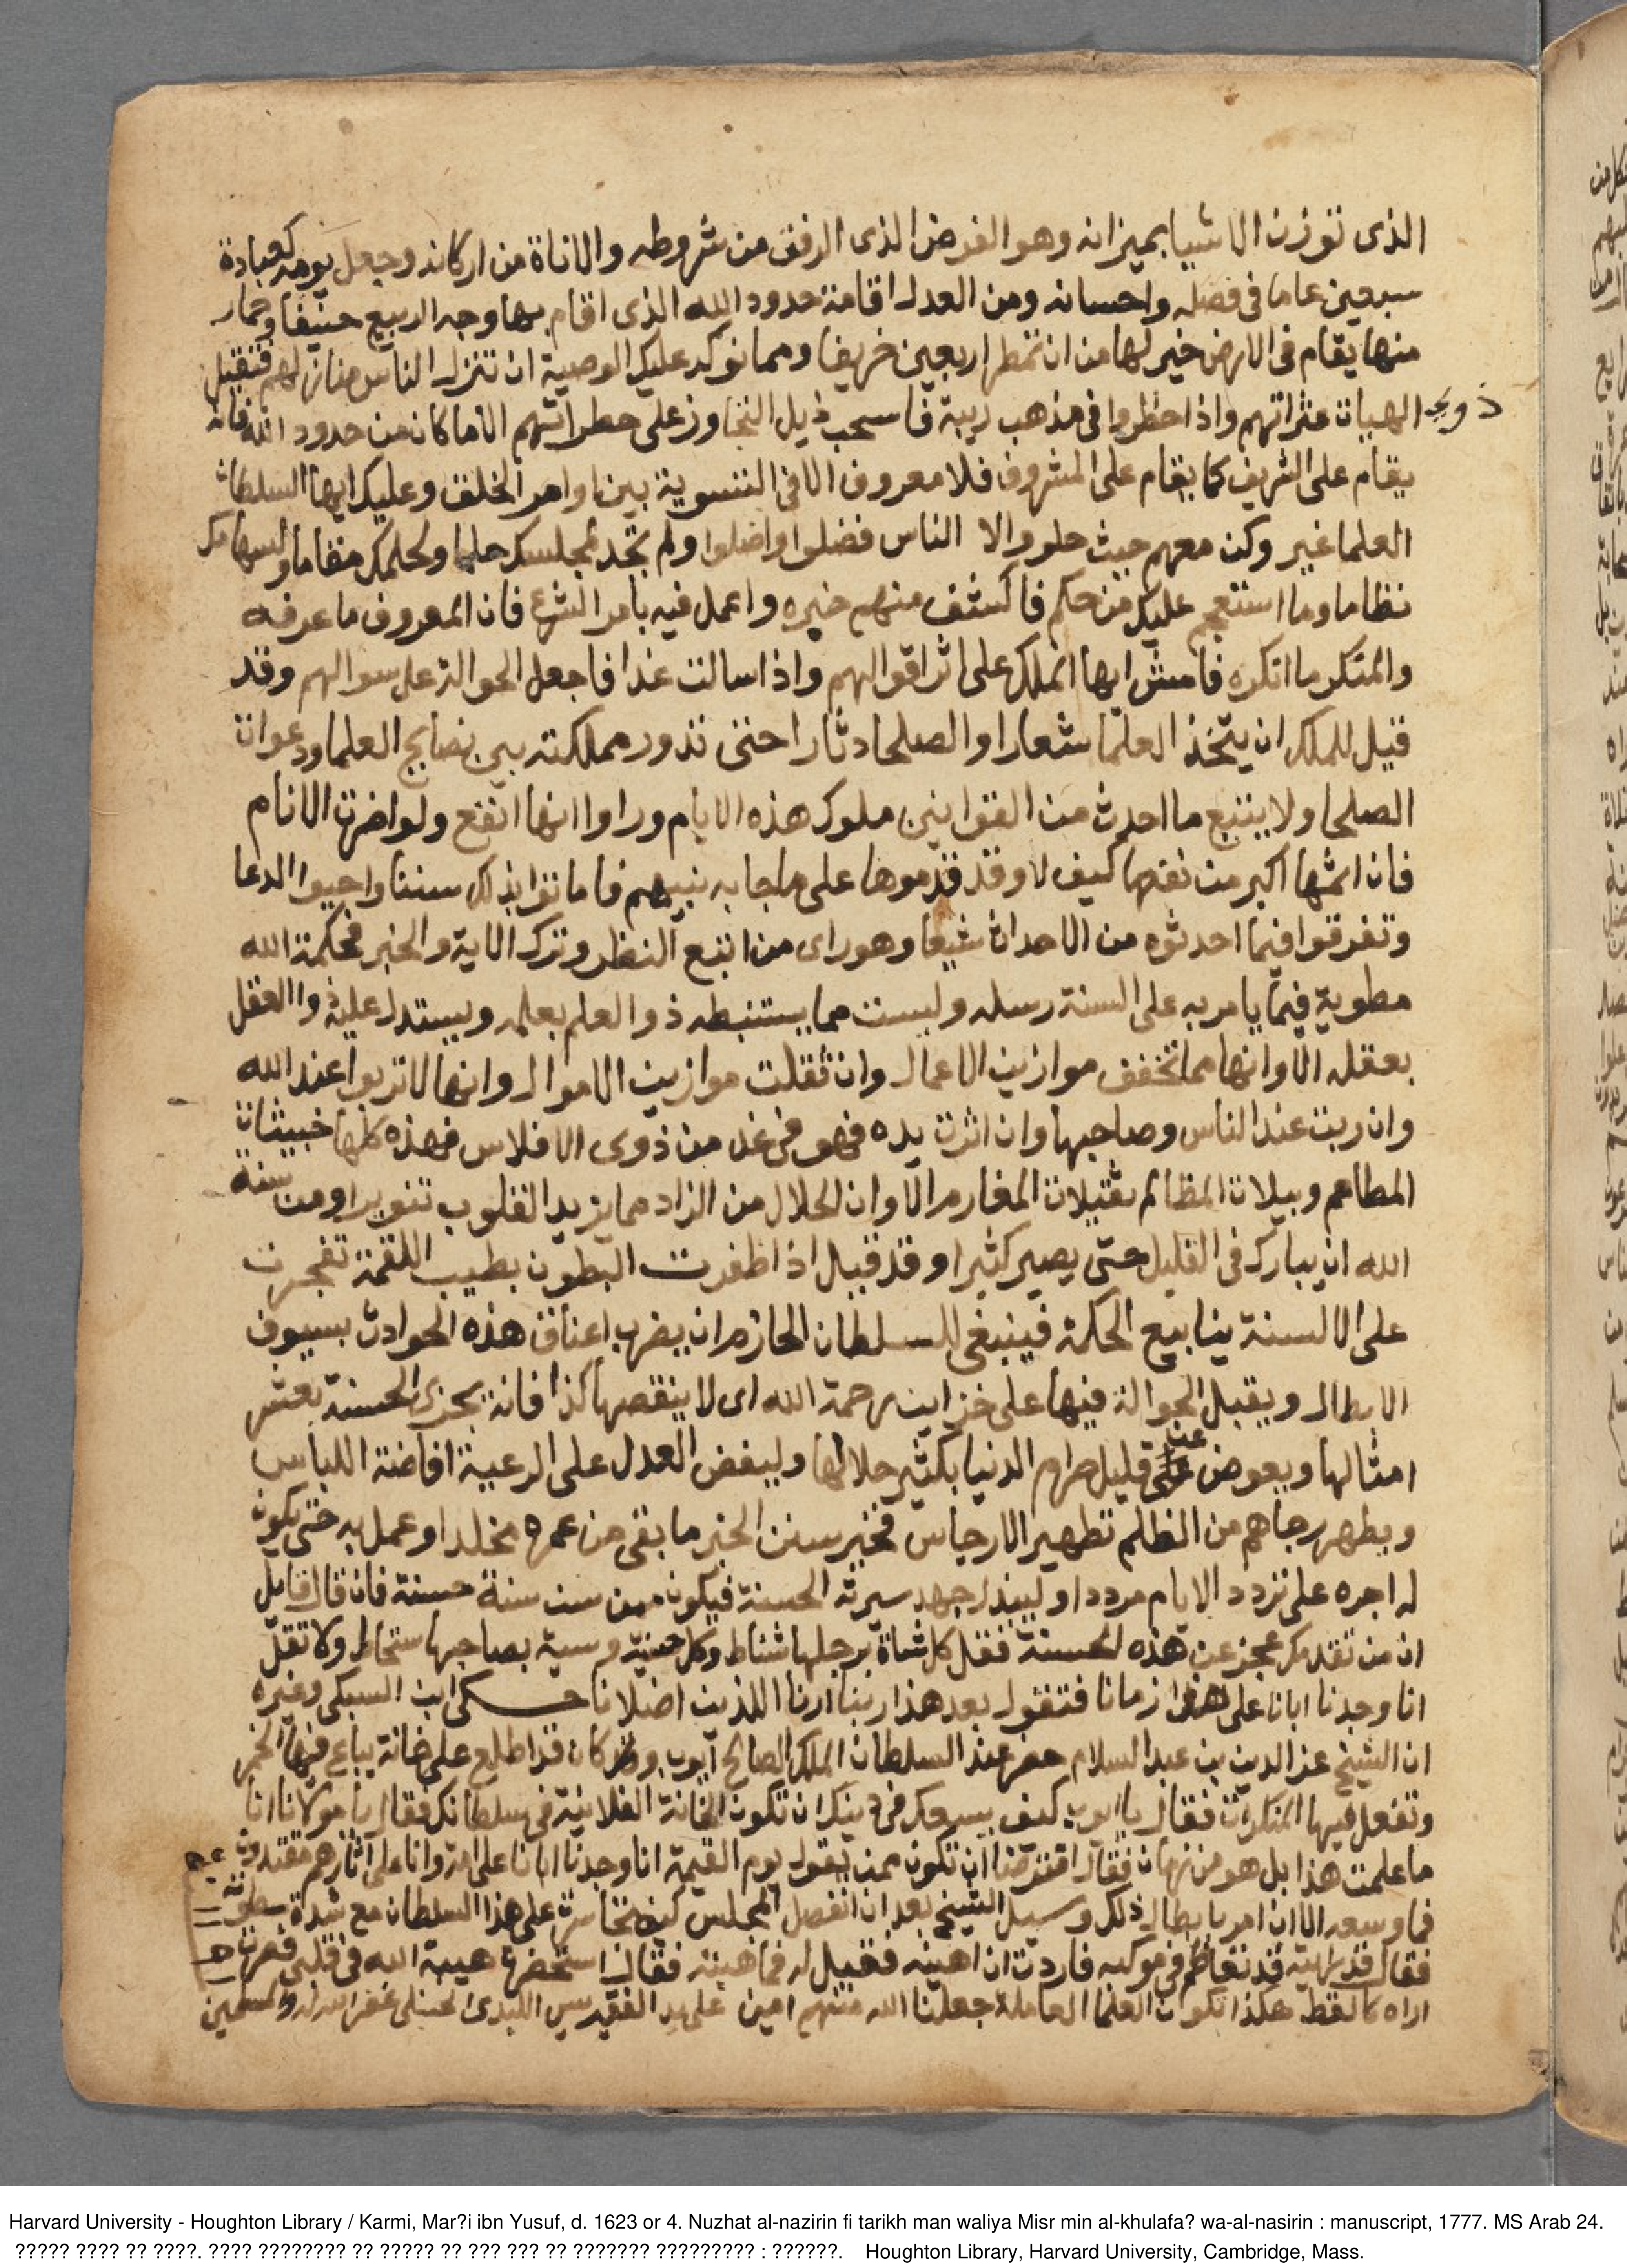 الذى توزن الاشيا بميزانه وهو الفرض الذى الرفق من شروطه والاناة من اركانه وجعل يومه كعبادة
سبعين عاما فى فضله واحسانه ومن العدل اقامة حدود الله الذى اقام بها وجه الربيع حنيفا وجمار
منها يقام فى الارض خير لها من ان تمطر اربعين خريفا ومما نوكد عليك الوصية ان تنزل الناس منازلهم فتقيل
ذوى الهيبات عثراتهم واذا خطروا فى مذهب ريبة فاسحب ذيل التجاوز على خطراتهم الا ما كان من حدود الله فانه
يقام على الشريف كما يقام على المشروف فلا معروف الا فى التسوية بين اوامر الخلق وعليك ايها السلطان
العلما غير وكن معهم حيث حلوا والا الناس فضلوا واضلوا ولم تجد لمجلسك حلما ولحلمك مقاما ولسهامك
نظاما وما استعجم عليك من حكم فاكشف منهم خبره واعمل فيه بامر الشرع فان المعروف ما عرفه
والمنكر ما انكره فامش ايها الملك على اثر اقوالهم واذا سالت غدا فاجعل الحوالة على سوالهم وقد
قيل للملك ان يتخذ العلما شعارا والصلحا دثارا حتى تدور مملكته بين نصايح العلما ودعوات
الصلحا ولا يتبع ما احدث من القوانين ملوك هذه الايام وراوا انها انفع ولو اضرت الانام
فان اثمها اكبر من نفعها كيف لا وقد قدموها على ما جا به نبيهم فاماتوا بذلك سننا واحيوا الدعا
وتفرقوا فيما احدثوه من الاحداث شيعا وهو راى من اتبع النظر وترك الاية والخبر فحكمة الله
مطوية فيما يامر به على السنة رسله وليست مما يستنبطه ذو العلم بعلمه ويستدل عليه ذوا العقل
بعقله الا وانها مما تخفف موازين الاعمال وان ثقلت موازين الاموال وانها لا تربوا عند الله
وان ربت عند الناس وصاحبها وان اثرت يده فهو فى غد من ذوى الافلاس فهذه كلها خبيثات
المطاعم وبيلات المظالم ثقيلات المغارم الا وان الحلال من الزاد مما يزيد القلوب تنويرا ومن سنة
الله ان يبارك فى القليل حتى يصير كثيرا وقد قيل اذا ظفرت البطون بطيب اللقمة تفجرت
على الالسنة ينابيع الحكمة فينبغى للسلطان الحازم ان يضرب اعناق هذه الحوادث بسيوف
الابطال ويقبل الحوالة فيها على خزاين رحمة الله اى لا ينقصها كذا فانه يجزى الحسنة بعشر
امثالها ويعوض عن قليل حرام الدنيا بكثير حلالها وليفض العدل على الرعية افاضة اللباس
ويطهر رجاهم من الظلم تطهير الارجاس فخير سنن الخير ما بقى من عمره مخلدا وعمل به حتى يكون
له اجره على تردد الايام مرددا وليبذل جهد سيرته الحسنة فيكون ممن سن سنة حسنة فان قال قايل
ان من تقدمك عجز عن هذه الحسنة فقل كل شاة برجلها تناط وكل سية بصاحبها ستحاط ولا تقل
انا وجدنا ابانا على هذا زمانا فتقول بعد هذا ربنا ارنا اللذين اضلانا حكى ابن السبكى وغيره
ان الشيخ عز الدين بن عبد السلام حضر عند السلطان الملك الصالح ايوب وقد كان قد اطلع على خانة يباع فيها الخمر
وتفعل فيها المنكرات فقال يا ايوب كيف يسعك فى دينك ان تكون الخانة الفلانية فى سلطانك فقال يا مولانا انا
ما علمت هذا بل هو من زمان فقال افترضا ان تكون ممن يقول يوم القيمة انا وجدنا ابانا على امة وانا على اثارهم مقتدون
فما وسعه الا ان امر بابطال ذلك وسيل الشيخ بعد ان انفصل المجلس كيف تجاسرت على هذا السلطان مع شدة سطوته
فقال قد رايته قد تعاظم فى موكبه فاردت ان اهينه فقيل له فما هبته فقال استحضرت هيبة الله فى قلبى فصرت
اراه كالقط هكذا تكون العلما العاملة جعلنا الله منهم امين على يد الفقير يس اللبدى الحنبلى غفر الله له وللمسلمين
Harvard University - Houghton Library / Karmi, Mar?i ibn Yusuf, d. 1623 or 4. Nuzhat al-nazirin fi tarikh man waliya Misr min al-khulafa? wa-al-nasirin : manuscript, 1777. MS Arab 24.
????? ???? ?? ????. ???? ???????? ?? ????? ?? ??? ??? ?? ??????? ????????? : ??????. Houghton Library, Harvard University, Cambridge, Mass.